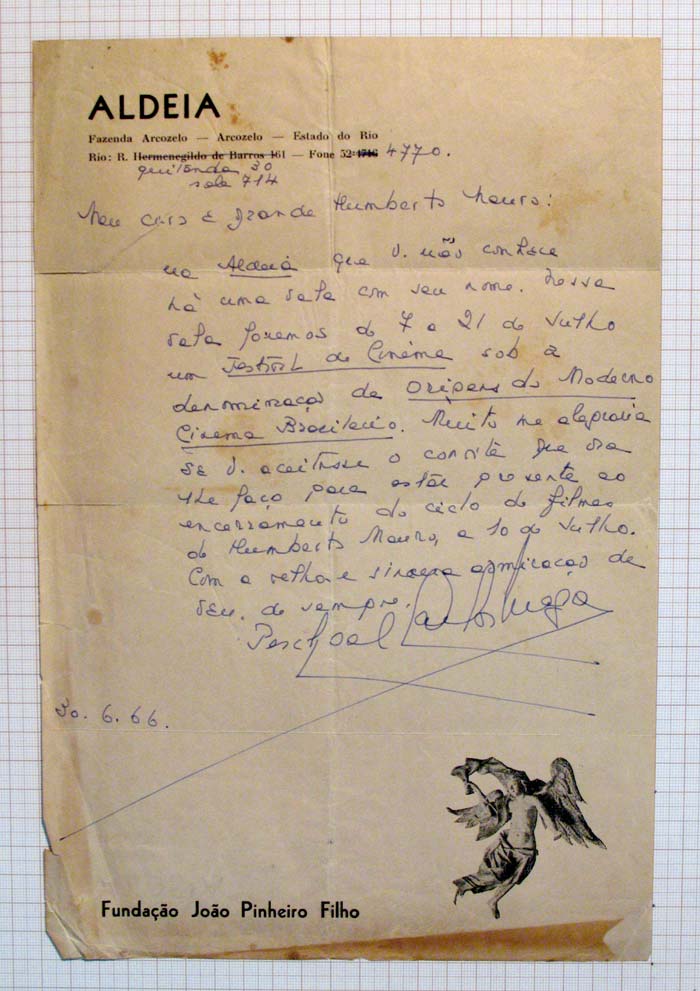 ALDEIA
Fazenda Arcozelo — Arcozelo — Estado do Rio
Rio: R. Hermenegildo de Barros 161 — Fone 52-1716 4770.
quitanda 30
sala 714
Meu caro e grande Humberto Mauro:
na Aldeia que V. não conhece
há uma sala com seu nome. Nessa
sala faremos de 7 a 21 de Julho
um Festival de Cinema sob a
denominação de Origens do Moderno
Cinema Brasileiro. Muito me alegraria
se V. aceitasse o convite que ora
lhe faço para estar presente ao
encerramento do ciclo de filmes
de Humberto Mauro, a 10 de Julho.
Com a velha e sincera admiração de
seu, de sempre,
Paschoal Carlos Magno
30.6.66.
Fundação João Pinheiro Filho